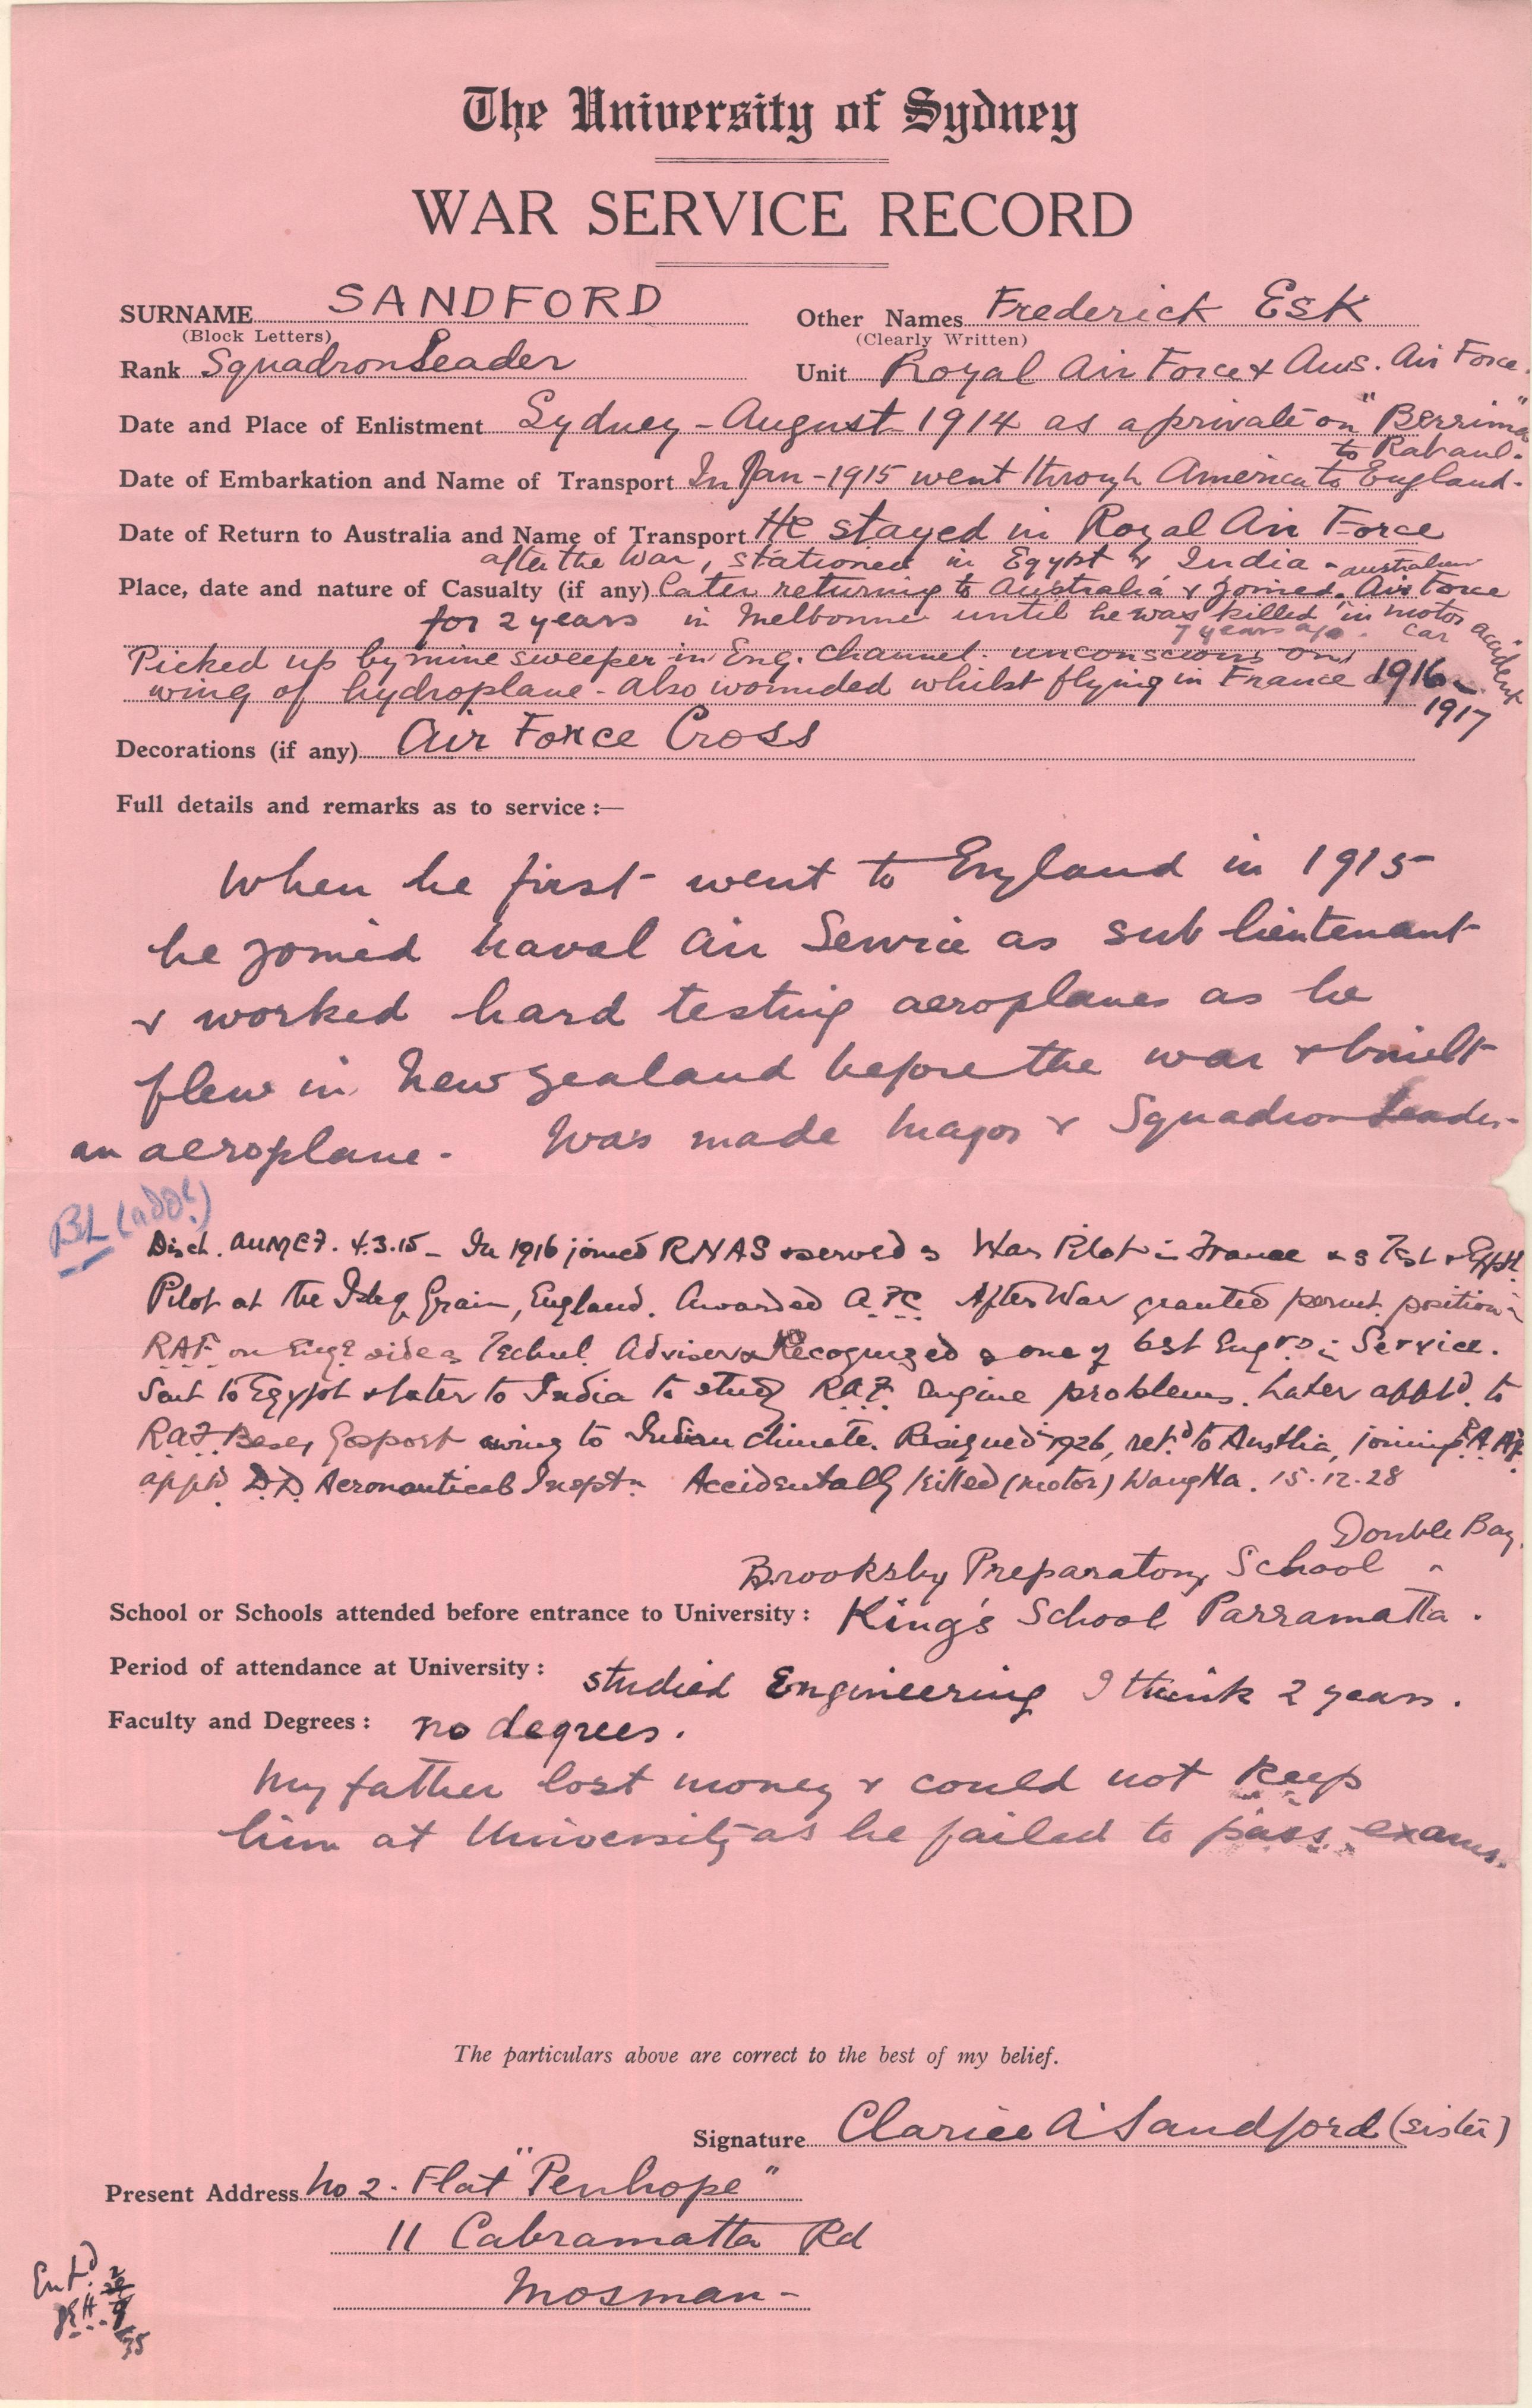 The University of Sydney
WAR SERVICE RECORD
SURNAME SANDFORD Other Names Frederick Esk
(Block Letters) (Clearly Written)
Rank Squadron Leader Unit Royal Air Force & Aus. Air Force.
Date and Place of Enlistment Sydney - August 1914 as a private on "Berrima"
to Rabaul.
Date of Embarkation and Name of Transport In Jan - 1915 went through America to England.
Date of Return to Australia and Name of Transport He stayed in Royal Air Force
after the War, stationed in Egypt & India - Australian
Place, date and nature of Casualty (if any) later returning to Australia & joined Air Force
for 2 years in Melbourne until he was killed in motor car accident
7 years ago.
Picked up by mine sweeper in Eng. Channel. unconscious on
wing of hydroplane - also wounded whilst flying in France 1916 -
1917
Decorations (if any) Air Force Cross
Full details and remarks as to service :—
When he first went to England in 1915
he joined Naval Air Service as sub lieutenant
& worked hard testing aeroplanes as he
flew in New Zealand before the war & built
an aeroplane. Was made Major & Squadron Leader.
BL (addl)
Disch. AUMEF. 4.3.15 - In 1916 joined RNAS & served as War Pilot in France & as Test & Exptl
Pilot at the Isle of Grain, England. Awarded AFC After War granted permt. position in
RAF on Engr side as Techncl Adviser & Recognized as one of best Engrs in Service.
Sent to Egypt & later to India to study RAF engine problems. Later apptd. to
RAF Base, Gosport owing to Indian climate. Resigned 1926, retd to Austlia, joining RAAF
apptd D.D Aeronautical Inspctn Accidentally killed (motor) Wangtta. 15.12.28
Double Bay.
Brooksby Preparatory School
School or Schools attended before entrance to University : King's School Parramatta.
Period of attendance at University : studied Engineering I think 2 years.
Faculty and Degrees : no degrees.
My father lost money & could not keep
him at University as he failed to pass exams.
The particulars above are correct to the best of my belief.
Signature Clarice A Sandford (sister)
Present Address No 2. Flat "Penhope"
11 Cabramatta Rd
Mosman -
Entd